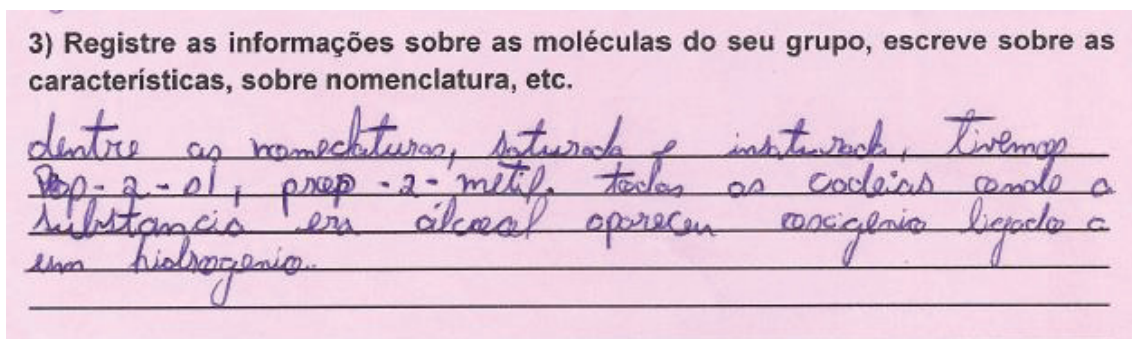 3) Registre as informações sobre as moléculas do seu grupo, escreve sobre as
características, sobre nomenclatura, etc.
dentre as nomeclaturas, saturada e insaturada, tivemos
Prop-2-ol, prop-2-metil. todas as cadeias aonde a
substancia era álcool apareceu oxigenio ligado a
um hidrogenio.